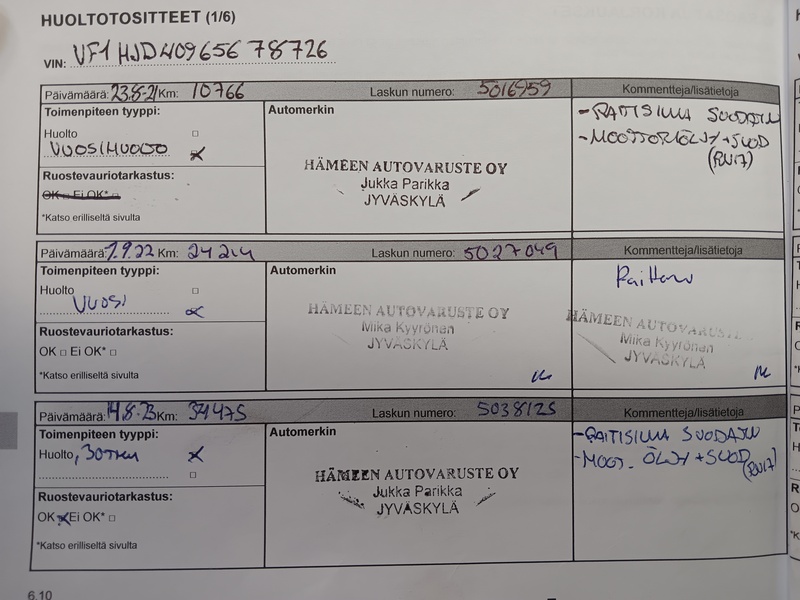 HUOLTOTOSITTEET (1/6)
VIN: VF1HJD40965678726
Päivämäärä: 23.8-21 Km: 10766 Laskun numero: 5016959 Kommentteja/lisätietoja
Toimenpiteen tyyppi:
Huolto □
VUOSIHUOLTO x
Ruostevauriotarkastus:
OK □ Ei OK* □
*Katso erilliseltä sivulta
Automerkin
HÄMEEN AUTOVARUSTE OY
Jukka Parikka
JYVÄSKYLÄ
-RAITISILMA SUODATIN
-MOOTTORIÖLJY+SUOD
(RN17)
Päivämäärä: 7.9.22 Km: 24214 Laskun numero: 5027049 Kommentteja/lisätietoja
Toimenpiteen tyyppi:
Huolto □
VUOSI x
Ruostevauriotarkastus:
OK □ Ei OK* □
*Katso erilliseltä sivulta
Automerkin
HÄMEEN AUTOVARUSTE OY
Mika Kyyrönen
JYVÄSKYLÄ
HÄMEEN AUTOVARUSTE
Mika Kyyrönen
JYVÄSKYLÄ
Päivämäärä: 14.8.23 Km: 37475 Laskun numero: 5038125 Kommentteja/lisätietoja
Toimenpiteen tyyppi:
Huolto, x
□
Ruostevauriotarkastus:
OK x Ei OK* □
*Katso erilliseltä sivulta
Automerkin
HÄMEEN AUTOVARUSTE OY
Jukka Parikka
JYVÄSKYLÄ
-RAITISILMA SUODATIN
-MOOT. ÖLJY+SUOD
(RN17)
6.10